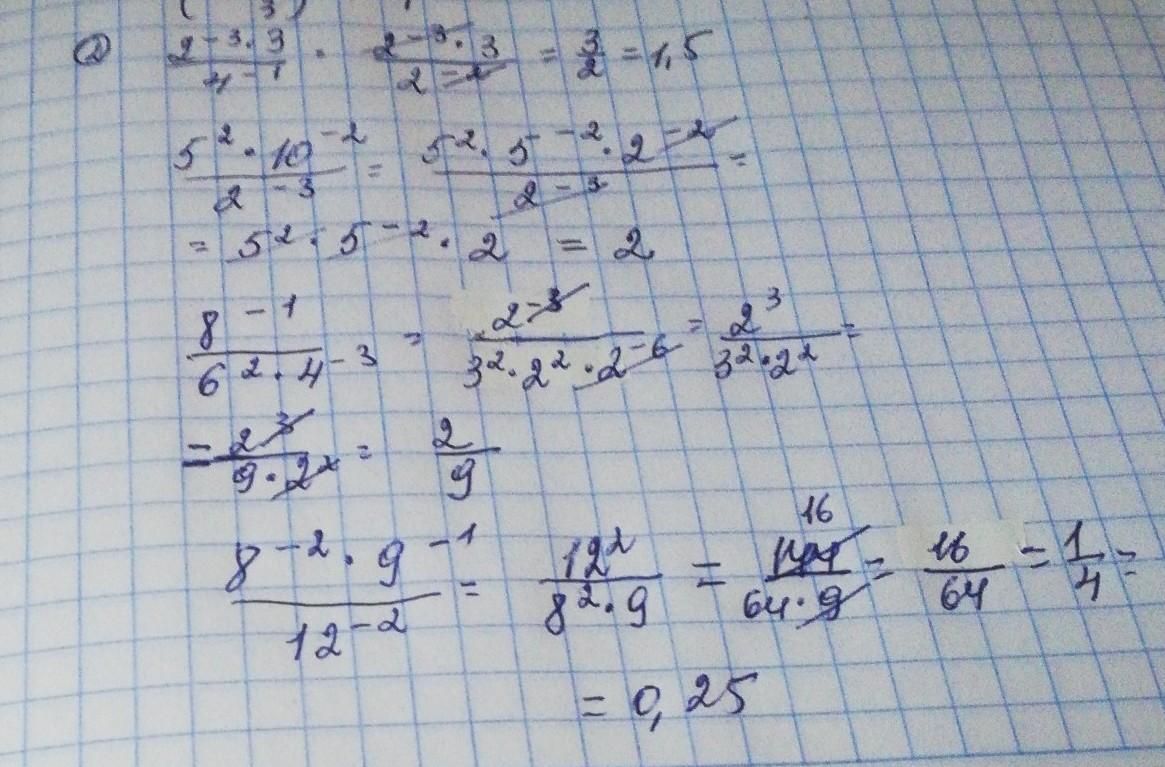 2) (2^-3 · 3)/(4^-1) · (2^-3 · 3)/(2^-2) = 3/2 = 1,5
(5^2 · 10^-2)/(2^-3) = (5^2 · 5^-2 · 2^-2)/(2^-3) =
= 5^2 · 5^-2 · 2 = 2
(8^-1)/(6^2 · 4^-3) = (2^-3)/(3^2 · 2^2 · 2^-6) = (2^3)/(3^2 · 2^2) =
= (2^3)/(9 · 2^2) = 2/9
(8^-2 · 9^-1)/(12^-2) = (12^2)/(8^2 · 9) = 16 144/(64 · 9) = 16/64 = 1/4 =
= 0,25